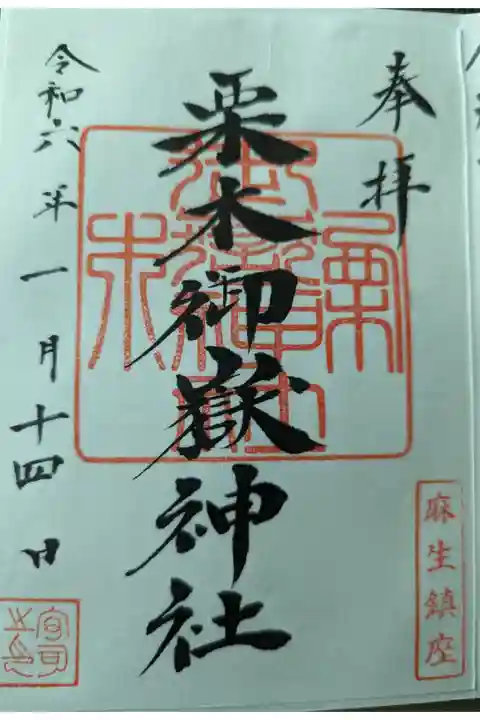 奉拝
麻生鎮座
栗木御嶽神社
令和六年一月十四日